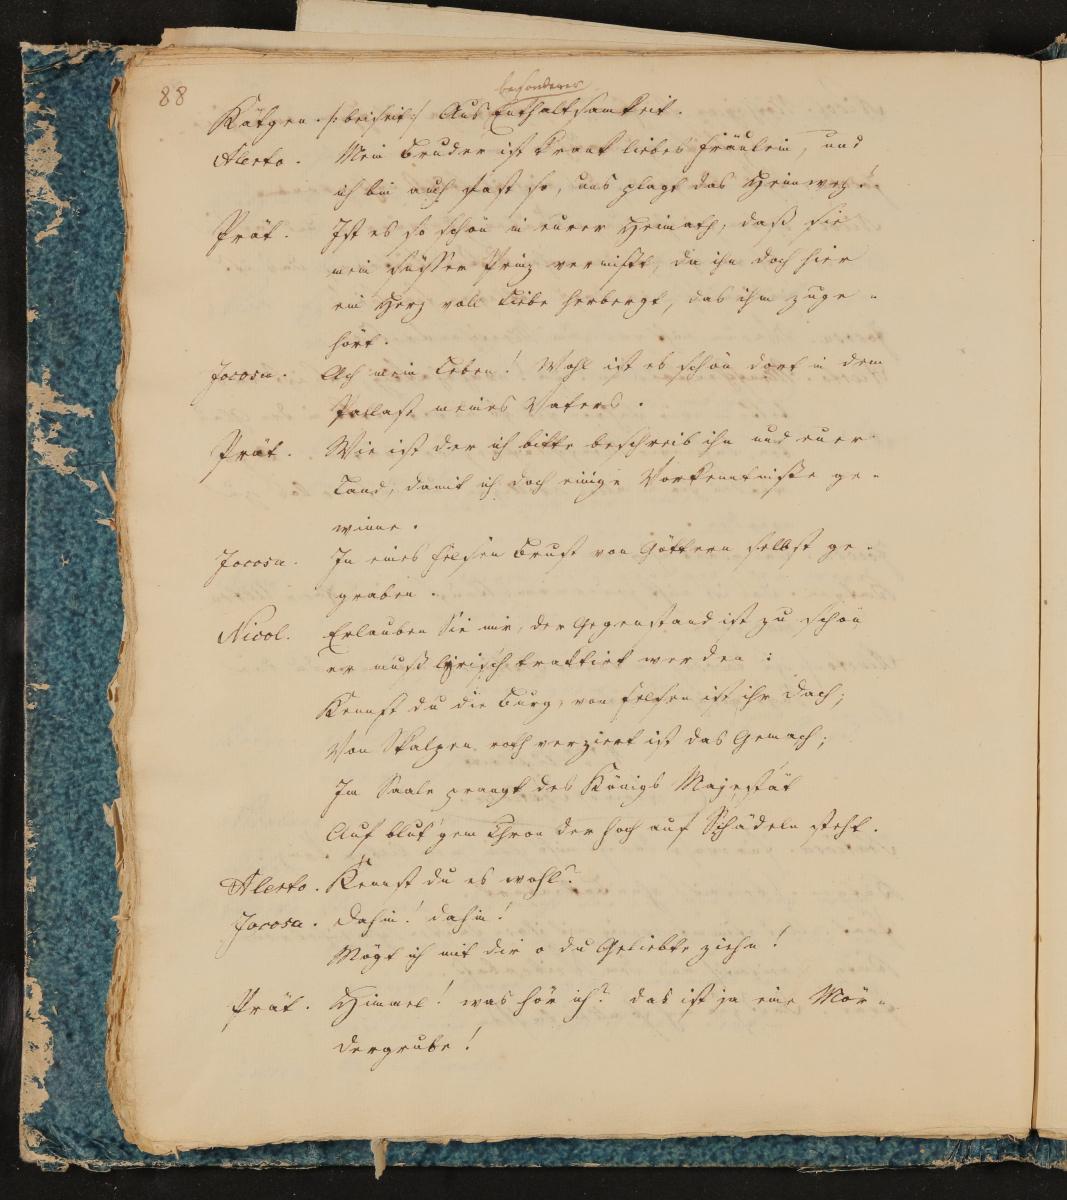 88
besonderer
Kätgen. /: beiseit :/ Aus Enthaltsamkeit.
Alerto. Mein Bruder ist krank liebes Fräulein, und
ich bin auch fast so, uns plagt das Heimweh!
Prät. Ist es so schön in eurer Heimath, daß sie
mein süsser Prinz vermißt, da ihn doch hier
ein Herz voll Liebe herbergt, das ihm zuge-
hört.
Jocosa. Ach mein Leben! Wohl ist es schön dort in dem
Pallast meines Vaters.
Prät. Wie ist der ich bitte beschreib ihn und euer
Land, damit ich doch einige Vorkenntniße ge-
winne.
Jocosa. In eines Felsen Brust von Göttern selbst ge-
graben.
Nicol. Erlauben Sie mir, der Gegenstand ist zu schön
er muß lyrisch traktiert werden:
Kennst du die Burg, von Felsen ist ihr Dach;
Von Skalpen roth verziert ist das Gemach;
Im Saale prangt des Königs Majestät
Auf blut'gem Thron der hoch auf Schädeln steht.
Alerto. Kennst du es wohl?
Jocosa. Dahin! dahin!
Mögt ich mit dir o du Geliebte ziehn!
Prät. Himmel! was hör ich? das ist ja eine Mör-
dergrube!